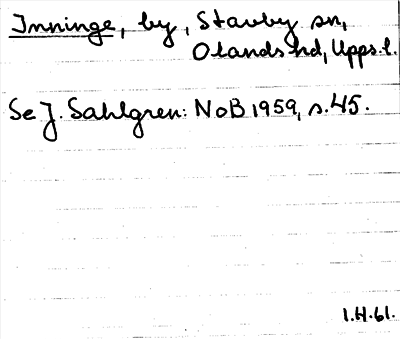 Inninge, by, Stavby sn,
Olands hd, Upps. l.
Se J. Sahlgren: NoB 1959, s. 45.
1.H.61.